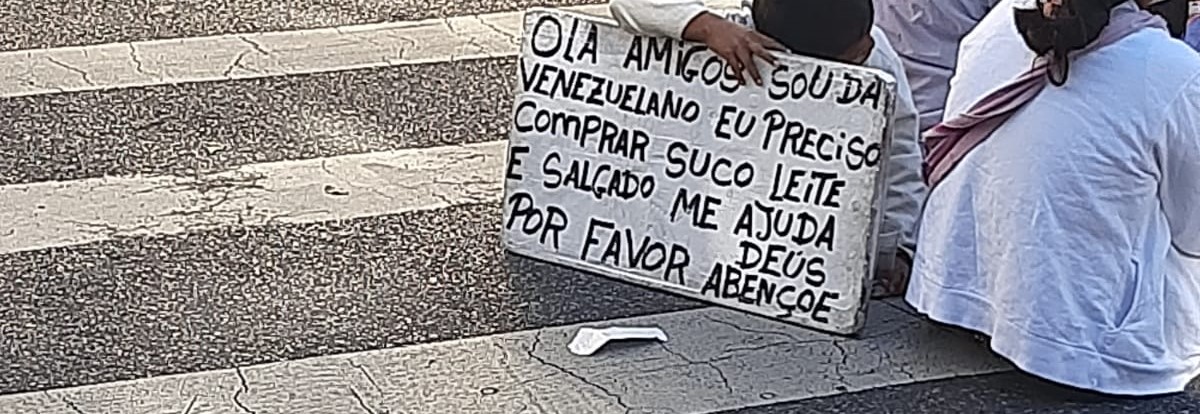 OLA AMIGOS SOU DA
VENEZUELANO EU PRECISO
COMPRAR SUCO LEITE
E SALGADO ME AJUDA
POR FAVOR DEUS
ABENÇOE